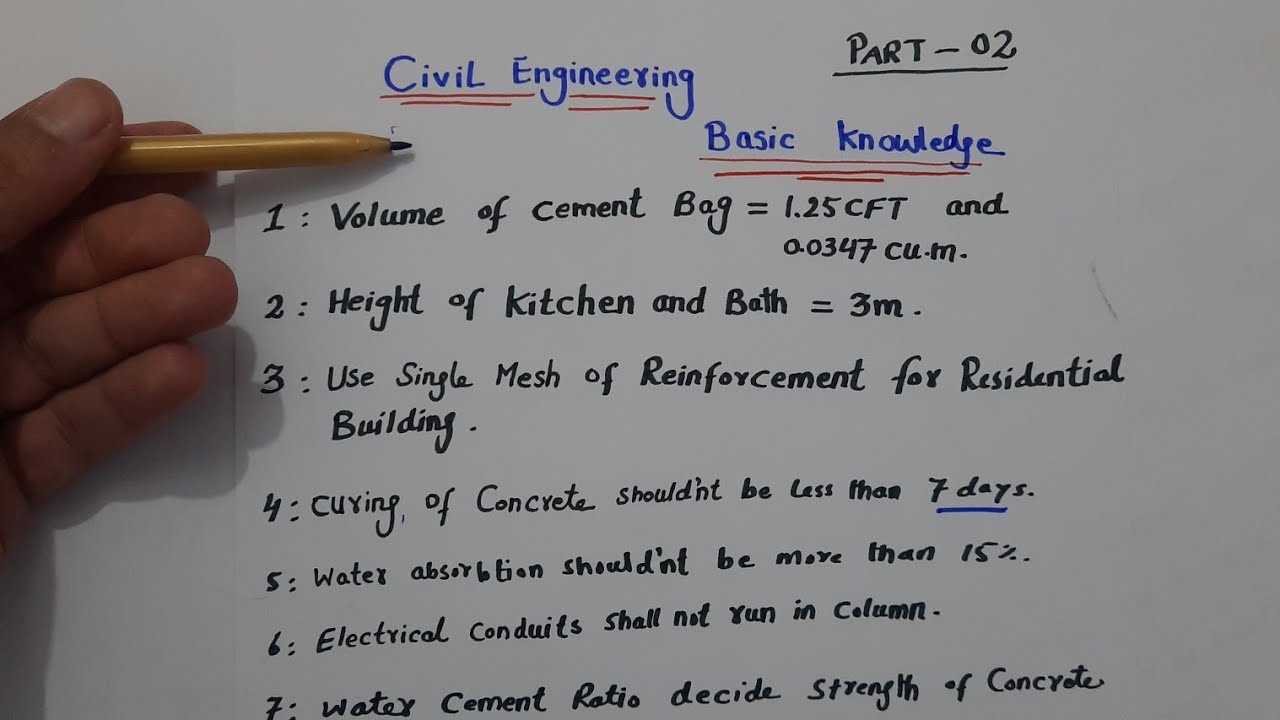 PART - 02
Civil Engineering
Basic Knowledge
1 : Volume of Cement Bag = 1.25 CFT and
0.0347 cu.m.
2 : Height of Kitchen and Bath = 3m.
3 : Use Single Mesh of Reinforcement for Residential
Building.
4 : Curing of Concrete should'nt be less than 7 days.
5 : Water absorbtion should'nt be more than 15%.
6 : Electrical Conduits shall not run in Column.
7 : Water Cement Ratio decide strength of Concrete